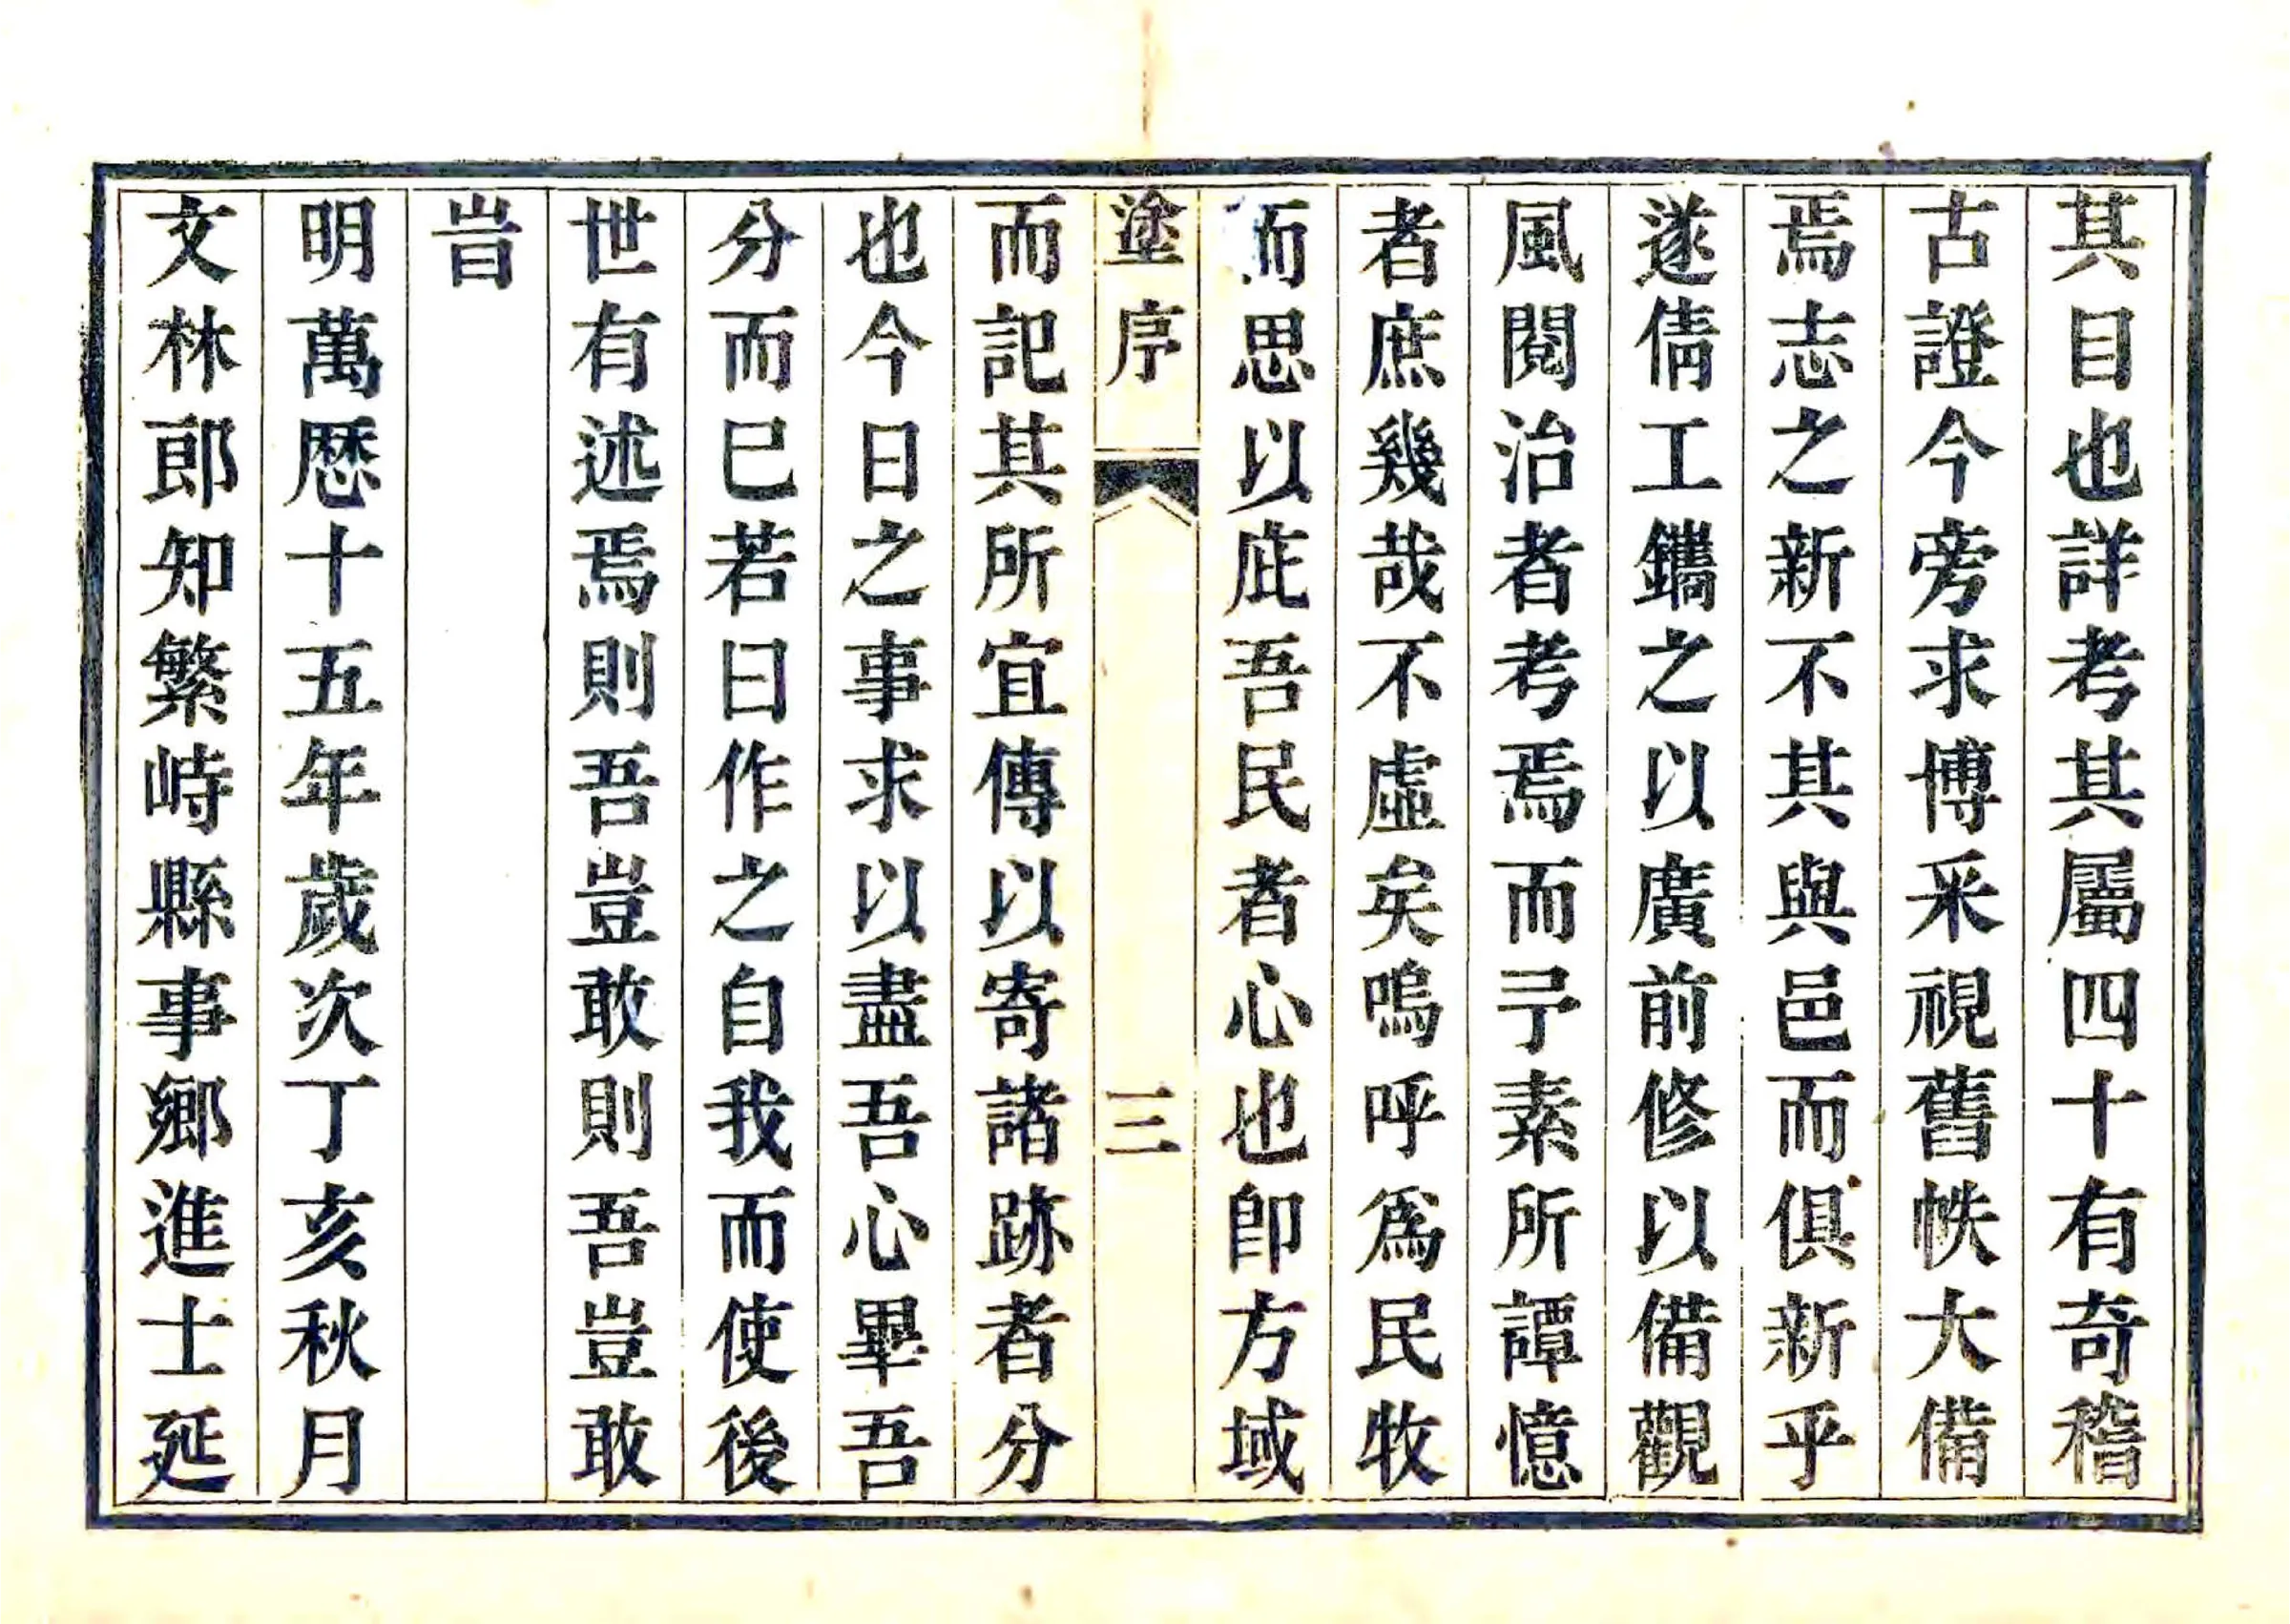 其目也詳考其屬四十有奇稽
古證今旁求博采視舊帙大備
焉志之新不其與邑而俱新乎
遂倩工鐫之以廣前修以備觀
風閱治者考焉而予素所譚憶
者庶幾哉不虛矣嗚呼爲民牧
而思以庇吾民者心也卽方域
塗序 三
而記其所宜傳以寄諸跡者分
也今日之事求以盡吾心畢吾
分而已若曰作之自我而使後
世有述焉則吾豈敢則吾豈敢
旹
明萬歷十五年歲次丁亥秋月
文林郎知繁峙縣事鄉進士延